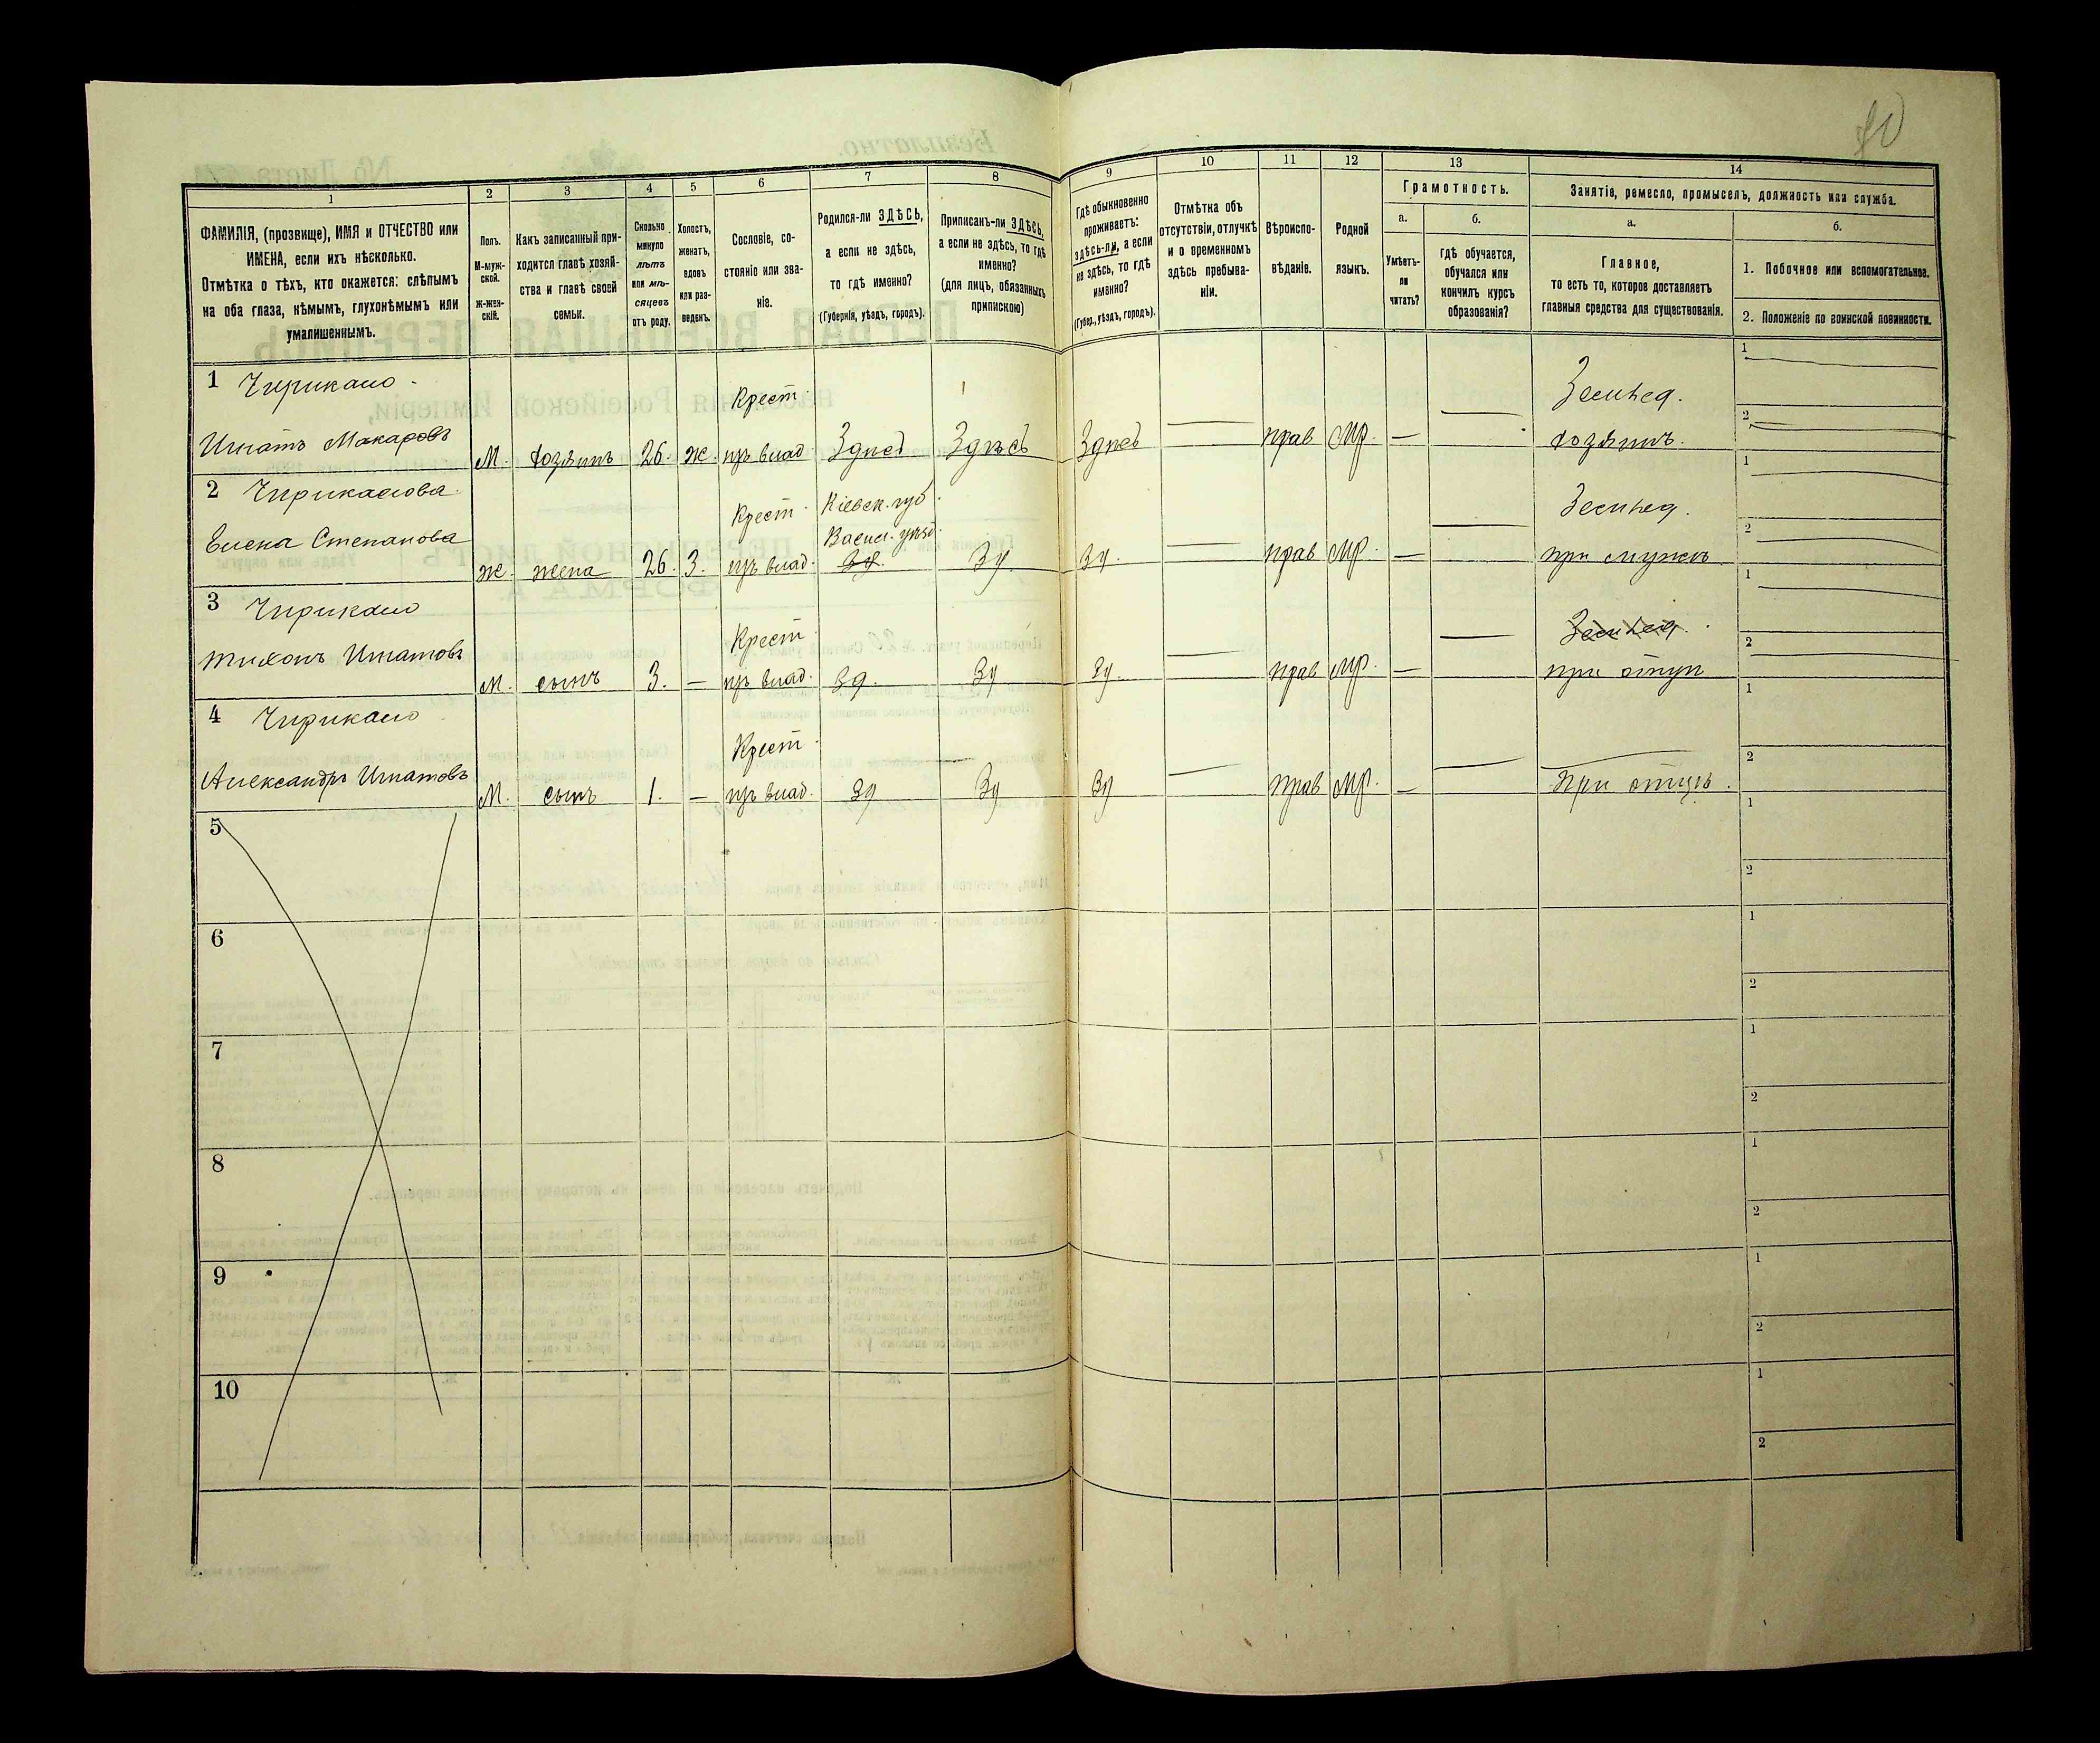 40
1
2
3
4
5
6
7
8
9
10
11
12
13
14
ФАМИЛІЯ, (прозвище), ИМЯ и ОТЧЕСТВО или
ИМЕНА, если ихъ нѣсколько.
Отмѣтка о тѣхъ, кто окажется: слѣпымъ
на оба глаза, нѣмымъ, глухонѣмымъ или
умалишеннымъ.
Полъ.
М-муж-
ской.
Ж-жен-
скій.
Какъ записанный при-
ходится главѣ хозяй-
ства и главѣ своей
семьи.
Сколько
минуло
лѣтъ
или мѣ-
сяцевъ
отъ роду.
Холостъ,
женатъ,
вдовъ
или раз-
веденъ.
Сословіе, со-
стояніе или зва-
ніе.
Родился-ли ЗДѢСЬ,
а если не здѣсь,
то гдѣ именно?
(Губернія, уѣздъ, городъ).
Приписанъ-ли ЗДѢСЬ,
а если не здѣсь, то гдѣ
именно?
(для лицъ, обязанныхъ
припискою)
Гдѣ обыкновенно
проживаетъ:
здѣсь-ли, а если
не здѣсь, то гдѣ
именно?
(Губер., уѣздъ, городъ).
Отмѣтка объ
отсутствіи, отлучкѣ
и о временномъ
здѣсь пребыва-
ніи.
Вѣроиспо-
вѣданіе.
Родной
языкъ.
Грамотность.
а.
Умѣетъ-
ли
читать?
б.
Гдѣ обучается,
обучался или
кончилъ курсъ
образованія?
Занятіе, ремесло, промыселъ, должность или служба.
а.
Главное,
то есть то, которое доставляетъ
главныя средства для существованія.
б.
1. Побочное или вспомогательное.
2. Положеніе по воинской повинности.
1 Чирикало
Крест
Землед.
1
2
Игнатъ Макаровъ М. Хозяинъ 26. Ж. пр влад Здѣсь Здѣсь Здѣсь — прав Мр. — — хозяинъ.
2 Чирикалова
Крест Кіевск. губ.
Землед.
1
2
Елена Степанова Васил. уѣзд.
Ж. жена 26. З. пр влад. Зд. Зд Зд. — прав Мр. — — при мужѣ
3 Чирикало
Крест
Землед.
1
2
Тихонъ Игнатовъ М. сынъ 3. — пр влад. Зд. Зд Зд. — прав Мр. — — при отцѣ
4 Чирикало
Крест
1
2
Александръ Игнатовъ М. сынъ 1. — пр влад. Зд Зд Зд — прав Мр. — — при отцѣ.
5
1
2
6
1
2
7
1
2
8
1
2
9
1
2
10
1
2